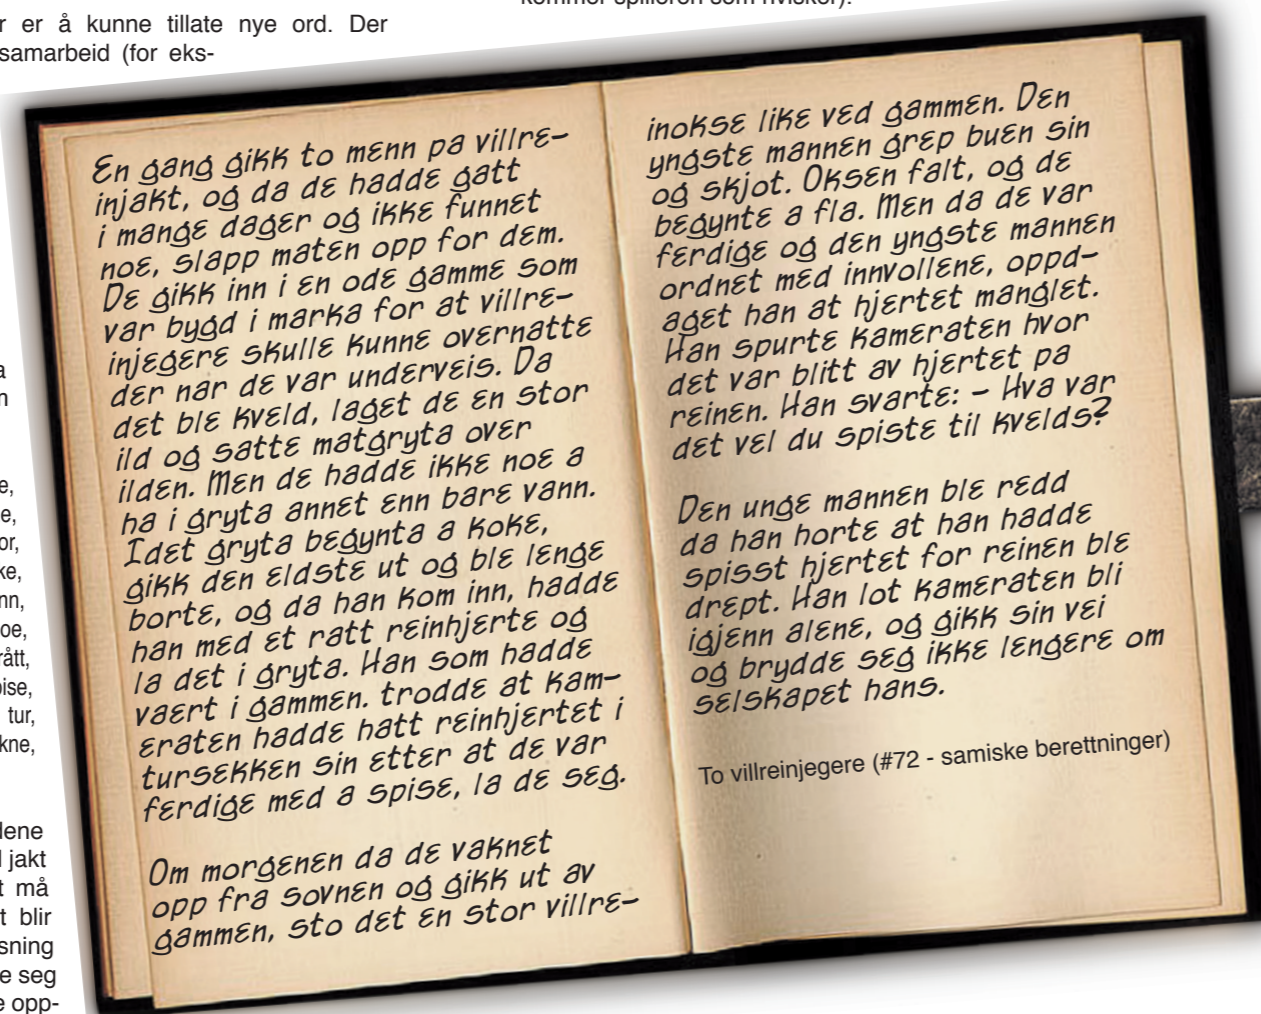 r er å kunne tillate nye ord. Der
samarbeid (for eks-
kommer spilleren som hvisker).
a
n
e,
e,
or,
ke,
nn,
oe,
rått,
pise,
tur,
kne,
dene
d jakt
t må
t blir
sning
e seg
e opp-
En gang gikk to menn pa villre-
injakt, og da de hadde gatt
i mange dager og ikke funnet
noe, slapp maten opp for dem.
De gikk inn i en ode gamme som
var bygd i marka for at villre-
injegere skulle kunne overnatte
der nar de var underveis. Da
det ble kveld, laget de en stor
ild og satte matgryta over
ilden. Men de hadde ikke noe a
ha i gryta annet enn bare vann.
Idet gryta begynta a koke,
gikk den eldste ut og ble lenge
borte, og da han kom inn, hadde
han med et ratt reinhjerte og
la det i gryta. Han som hadde
vaert i gammen. trodde at kam-
eraten hadde hatt reinhjertet i
tursekken sin etter at de var
ferdige med a spise, la de seg.
Om morgenen da de vaknet
opp fra sovnen og gikk ut av
gammen, sto det en stor villre-
inokse like ved gammen. Den
yngste mannen grep buen sin
og skjot. Oksen falt, og de
begynte a fla. Men da de var
ferdige og den yngste mannen
ordnet med innvollene, oppd-
aget han at hjertet manglet.
Han spurte kameraten hvor
det var blitt av hjertet pa
reinen. Han svarte: - Hva var
det vel du spiste til kvelds?
Den unge mannen ble redd
da han horte at han hadde
spisst hjertet for reinen ble
drept. Han lot kameraten bli
igjenn alene, og gikk sin vei
og brydde seg ikke lengere om
selskapet hans.
To villreinjegere (#72 - samiske berettninger)